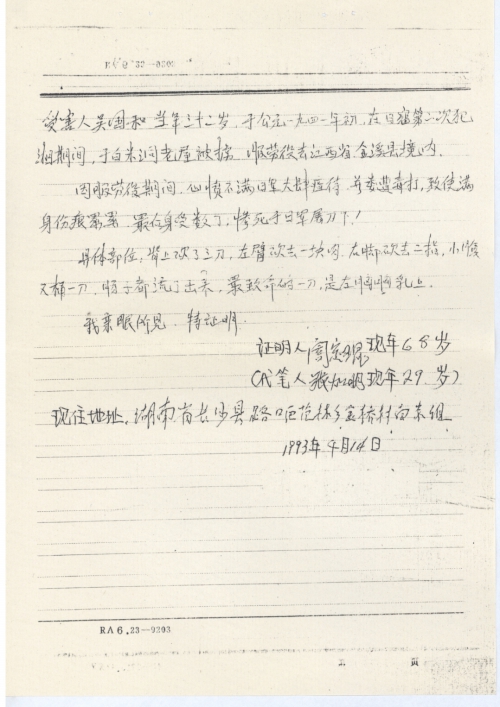 RA6.23—9203
受害人吴国和 当年三十二岁，于公元一九四一年初，在日寇第二次犯
湘期间，于白米洞老屋被捉，服劳役去江西省金溪县境内。
因服劳役期间，心愤不满日军大肆虐待，并遭毒打，致使满
身伤痕累累，最后身受数刀，惨死于日军屠刀下！
具体部位，背上砍了三刀，左臂砍去一块肉，右脚砍去二指，小腹
又捅一刀，肠子都流了出来，最致命的一刀，是左胸膛乳上。
我亲眼所见，特证明。
证明人 现年68岁
（代笔人 现年29岁）
现住地址，湖南省长沙县路口区 乡 桥村白 组
1993年4月14日
RA6.23—9203
页